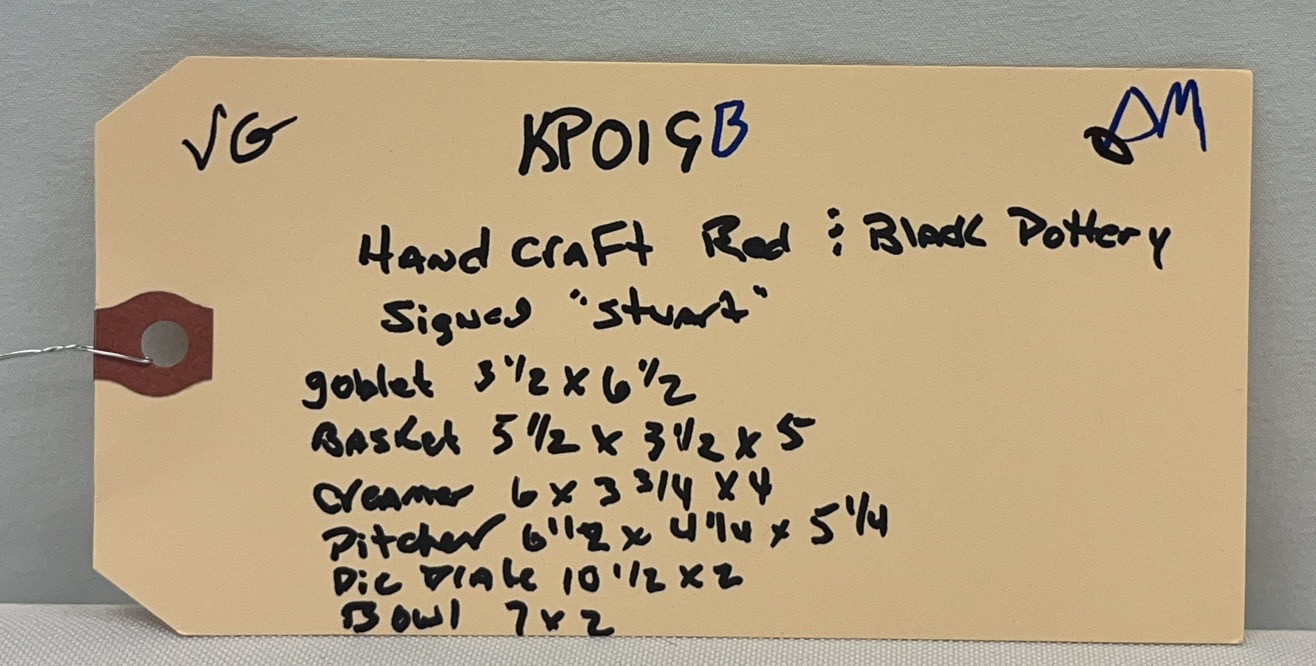 VG KP019B DM
Handcraft Red & Black Pottery
Signed "Stuart"
goblet 3 1/2 x 6 1/2
Basket 5 1/2 x 3 1/2 x 5
creamer 6 x 3 3/4 x 4
Pitcher 6 1/2 x 4 1/4 x 5 1/4
Pie Plate 10 1/2 x 2
Bowl 7 x 2